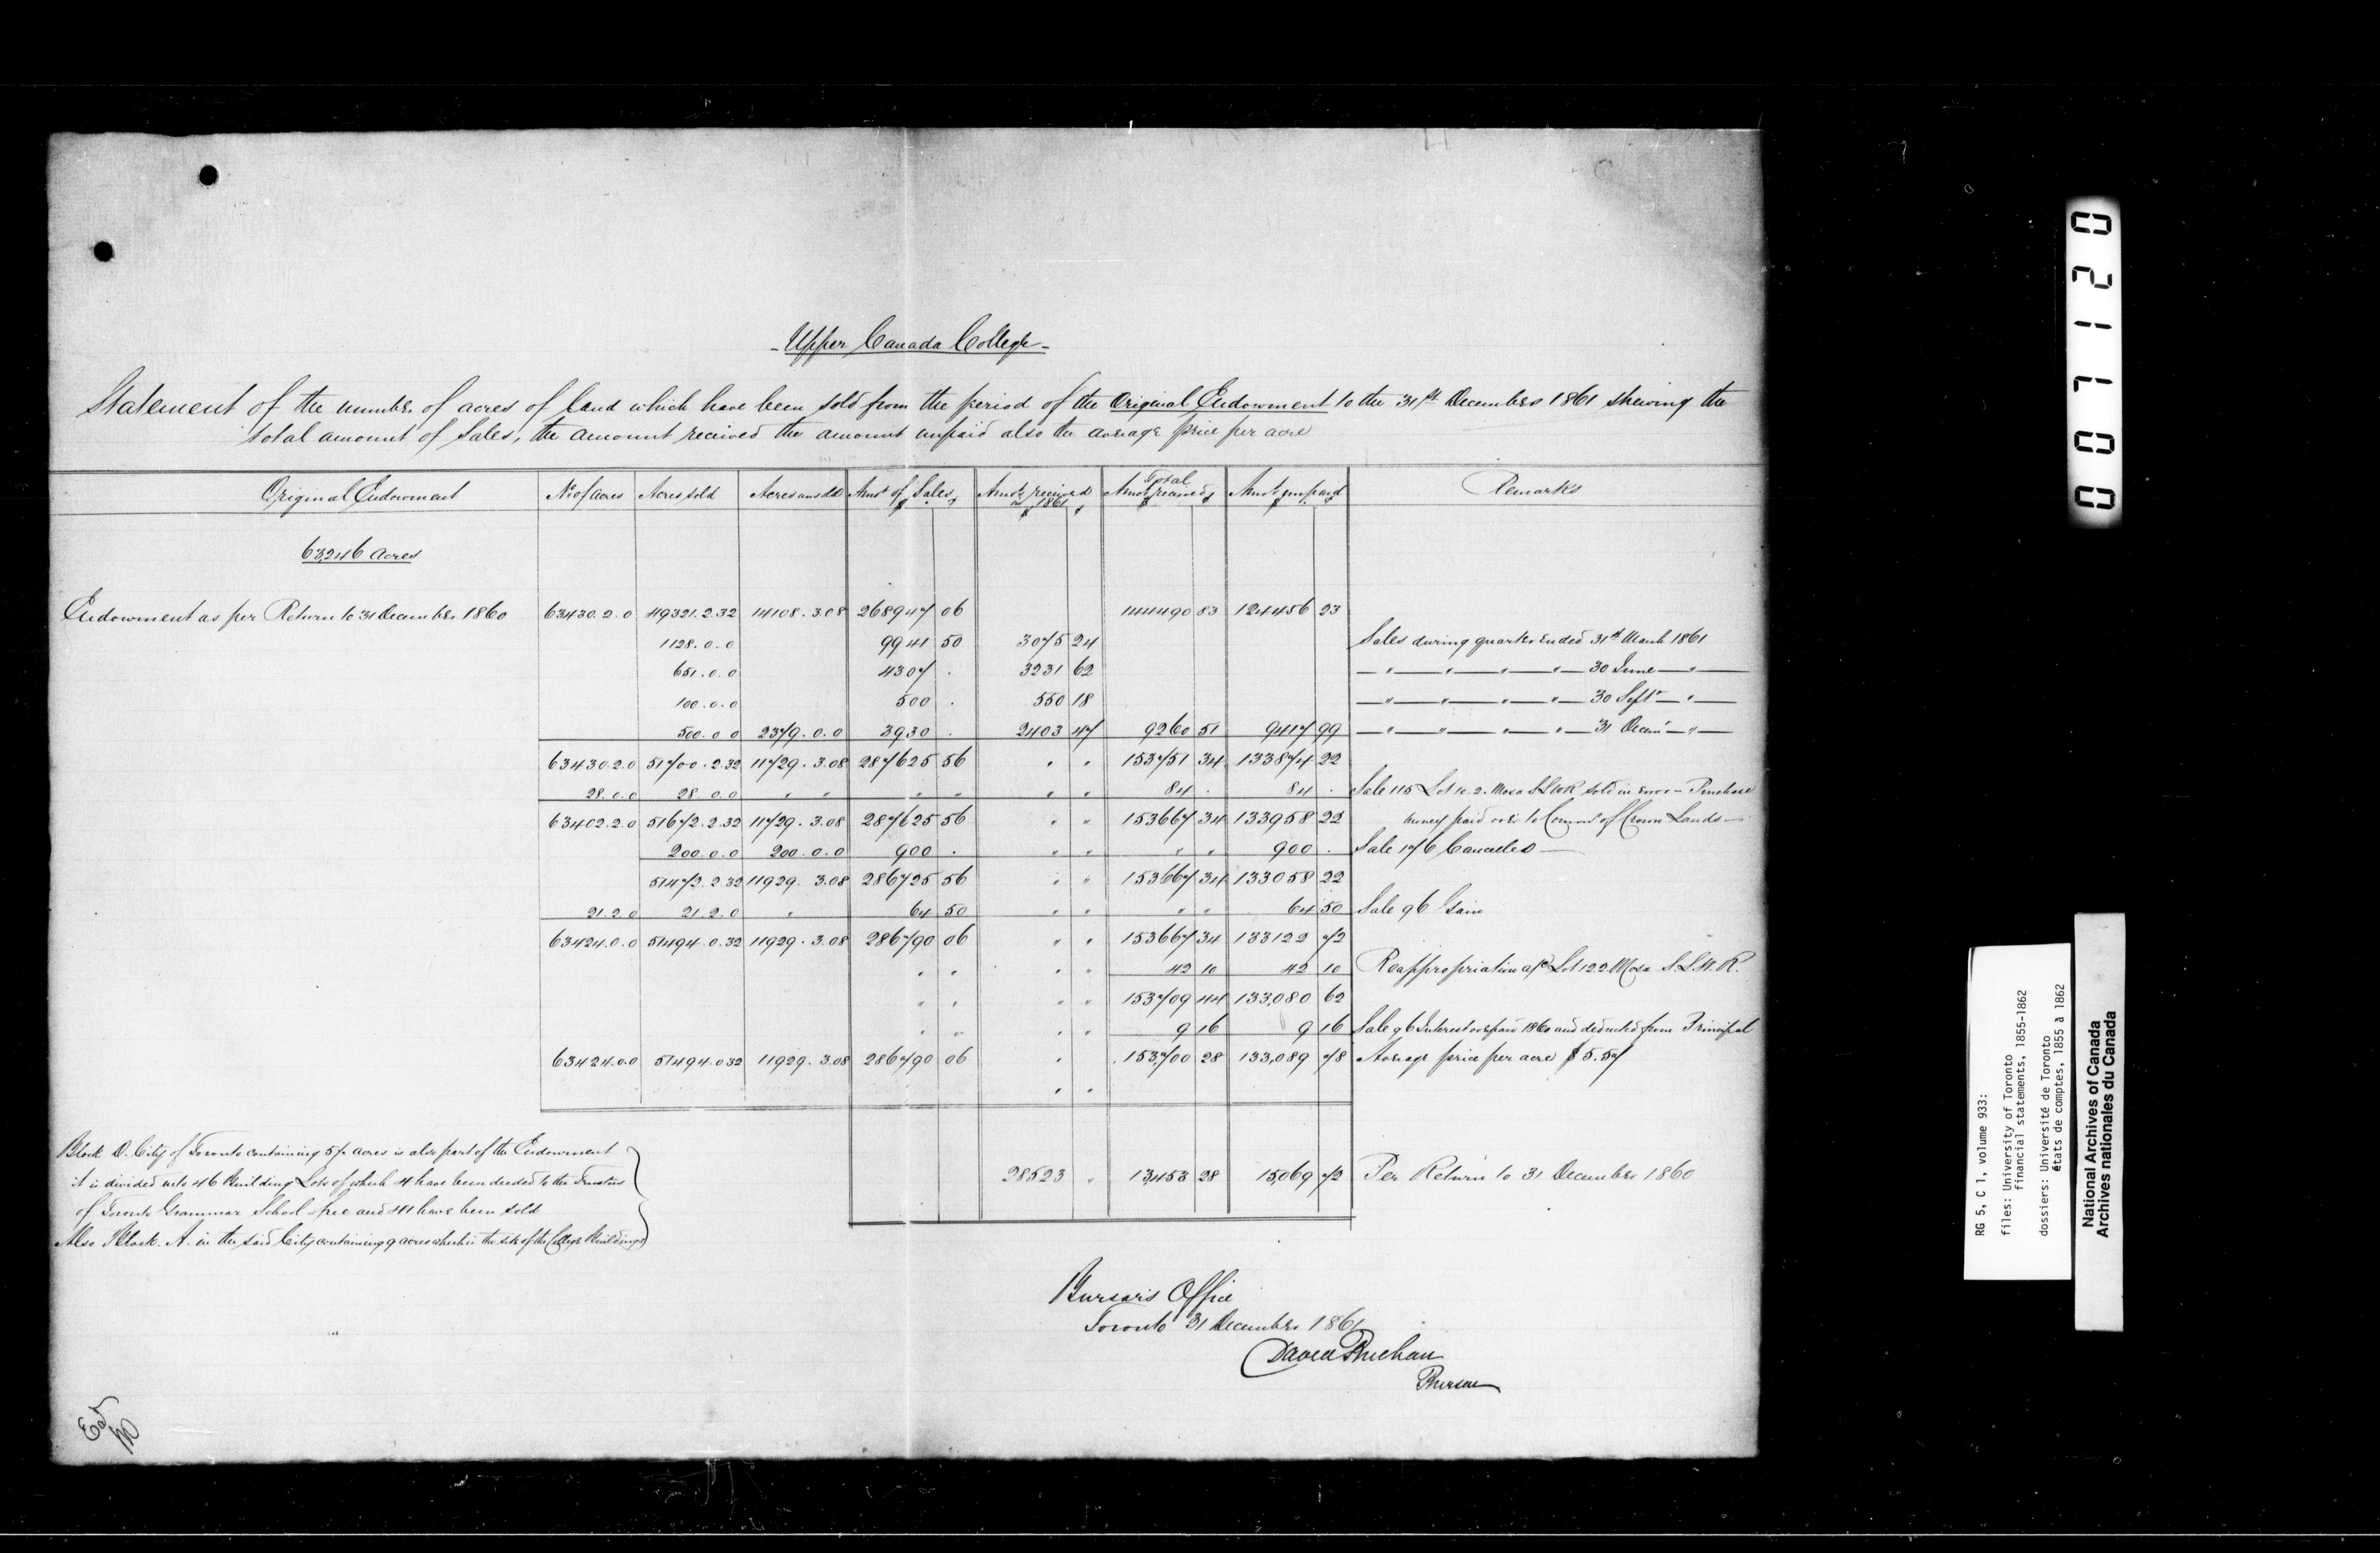 - Upper Canada College -
Statement of the number of acres of land which have been sold from the period of the Original Endowment to the 31st December 1861 shewing the
total amount of Sales, the amount received the amount unpaid also the average price per acre
Original Endowment No of acres Acres sold Acres unsold Amt of Sales Amt received 1861 Total Amt received Amt unpaid Remarks
$ $ $ $
63,246 acres
Endowment as per Return to 31 December 1860 63430.2.0 49321.2.32 14108.3.08 268947 06 144490 83 124456 23
1128.0.0 9941 50 3075 24 Sales during quarter ended 31st March 1861
651.0.0 4307 . 3231 62 — " — " — " — " — 30 June — " —
100.0.0 500 . 550 18 — " — " — " — " — 30 Septr — " —
500.0.0 2379.0.0 3930 . 2403 47 9260 51 9417 99 — " — " — " — " — 31 Decem' — " —
63430.2.0 51700.2.32 11729.3.08 287625 56 " " 153751 34 133874 22
28.0.0 28.0.0 " " " " " " 84 . 84 . Sale 115 Lot 12. 2. Mosa S.L.W.R sold in error - Purchase
63402.2.0 51672.2.32 11729.3.08 287625 56 " " 153667 34 133958 22 money paid over to Commr of Crown Lands —
200.0.0 200.0.0 900 . " " " " 900 . Sale 176 Canceled —
51472.2.32 11929.3.08 286725 56 " " 153667 34 133058 22
21.2.0 21.2.0 " 64 50 " " " " 64 50 Sale 96 Gain
63424.0.0 51494.0.32 11929.3.08 286790 06 " " 153667 34 133122 72
" " " " 42 10 42 10 Reappropriation a/c Lot 12.2 Mosa S.L.W.R.
" " " " 153709 44 133,080 62
" " " " 9 16 9 16 Sale 96 Interest overpaid 1860 and deducted from Principal
63424.0.0 51494.0.32 11929.3.08 286790 06 " 153,700 28 133,089 78 Average price per acre $5.57
" "
Block D. City of Toronto containing 5½ acres is also part of the Endowment
it is divided into 46 Building Lots of which 4 have been deeded to the Trustees
of Toronto Grammar School free and 41 have been sold
Also Block A. in the said City containing 9 acres which is the site of the College Buildings
28523 " 13,453 28 15,069 72 Per Return to 31 December 1860
Bursar's Office
Toronto 31 December 1861
David Buchan
Bursar
007120
RG 5, C 1, volume 933:
files: University of Toronto
financial statements, 1855-1862
dossiers: Université de Toronto
états de comptes, 1855 à 1862
National Archives of Canada
Archives nationales du Canada